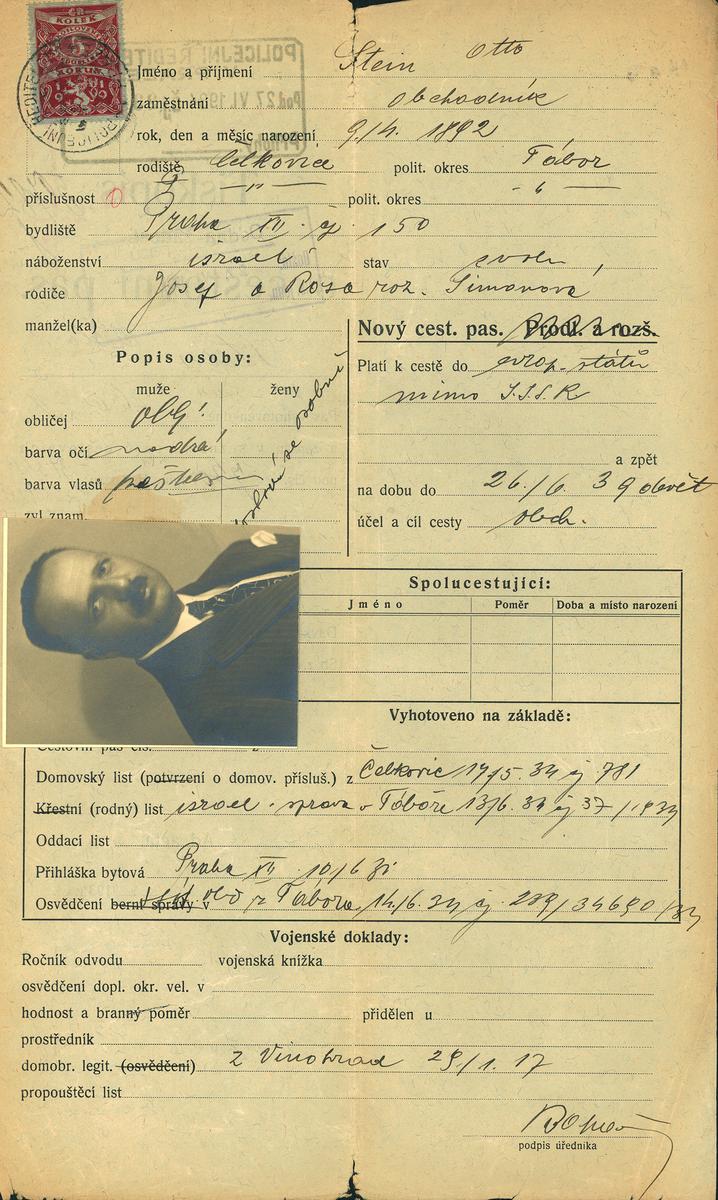 KOLEK
5
KORUN
Jméno a příjmení Stein Otto
zaměstnání obchodník
rok, den a měsíc narození 9./4. 1892
rodiště Čelkovice polit. okres Tábor
příslušnost 0 —"— polit. okres —"—
bydliště Praha XII. čj. 150
náboženství israel stav svob.
rodiče Josef a Rosa roz. Simonová
manžel(ka)
Nový cest. pas. Prodl. a rozš.
Popis osoby:
Platí k cestě do evrop. států
muže ženy
mimo S.S.S.R
obličej obl.
barva očí modrá
a zpět
barva vlasů
na dobu do 26./6. 39
zvl. znam.
účel a cíl cesty obch.
se osobně
Spolucestující:
Jméno Poměr Doba a místo narození
Vyhotoveno na základě:
Cestovní pas čís. z
Domovský list (potvrzení o domov. přísluš.) z Čelkovic 19/5. 34 čj 781
Křestní (rodný) list israel. správa v Táboře 13/6. 34 čj 37/1934
Oddací list
Přihláška bytová Praha XII 10/6
Osvědčení berní správy v z Tábora 14./6. 34 čj. 289/34680/34
Vojenské doklady:
Ročník odvodu vojenská knížka
osvědčení dopl. okr. vel. v
hodnost a branný poměr přidělen u
prostředník
domobr. legit. (osvědčení) z Vinohrad 29/1. 17
propouštěcí list
podpis úředníka